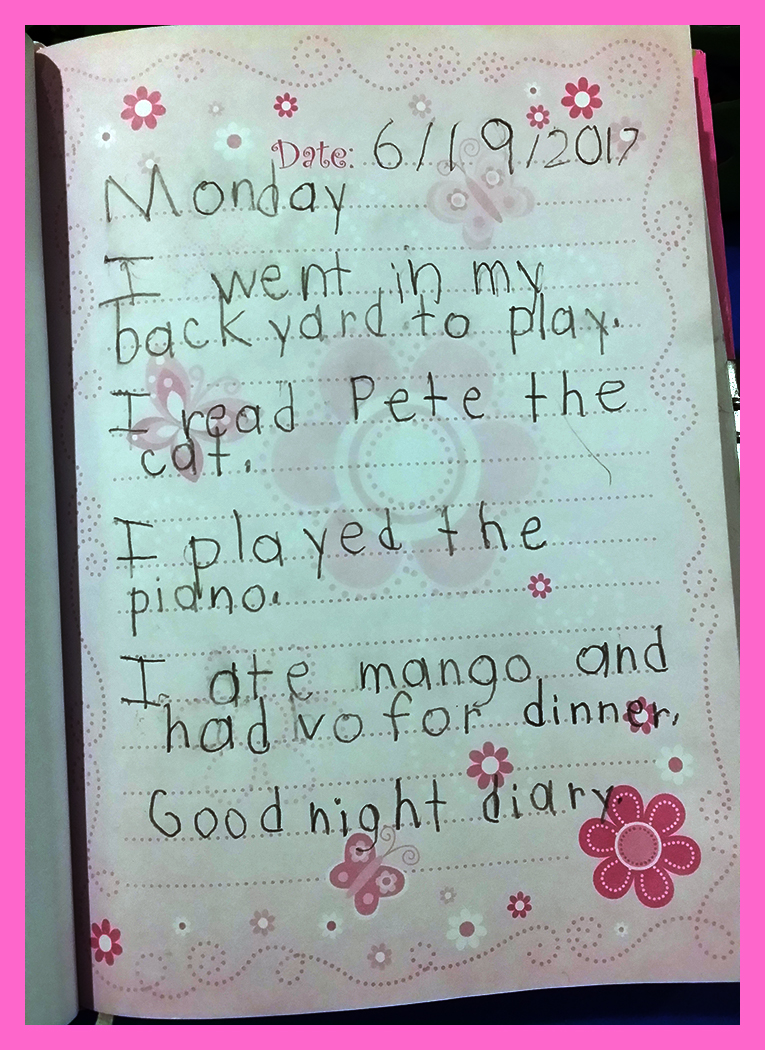 Date: 6/19/2017
Monday
I went in my
backyard to play.
I read Pete the
cat.
I played the
piano.
I ate mango and
had vo for dinner.
Good night diary.